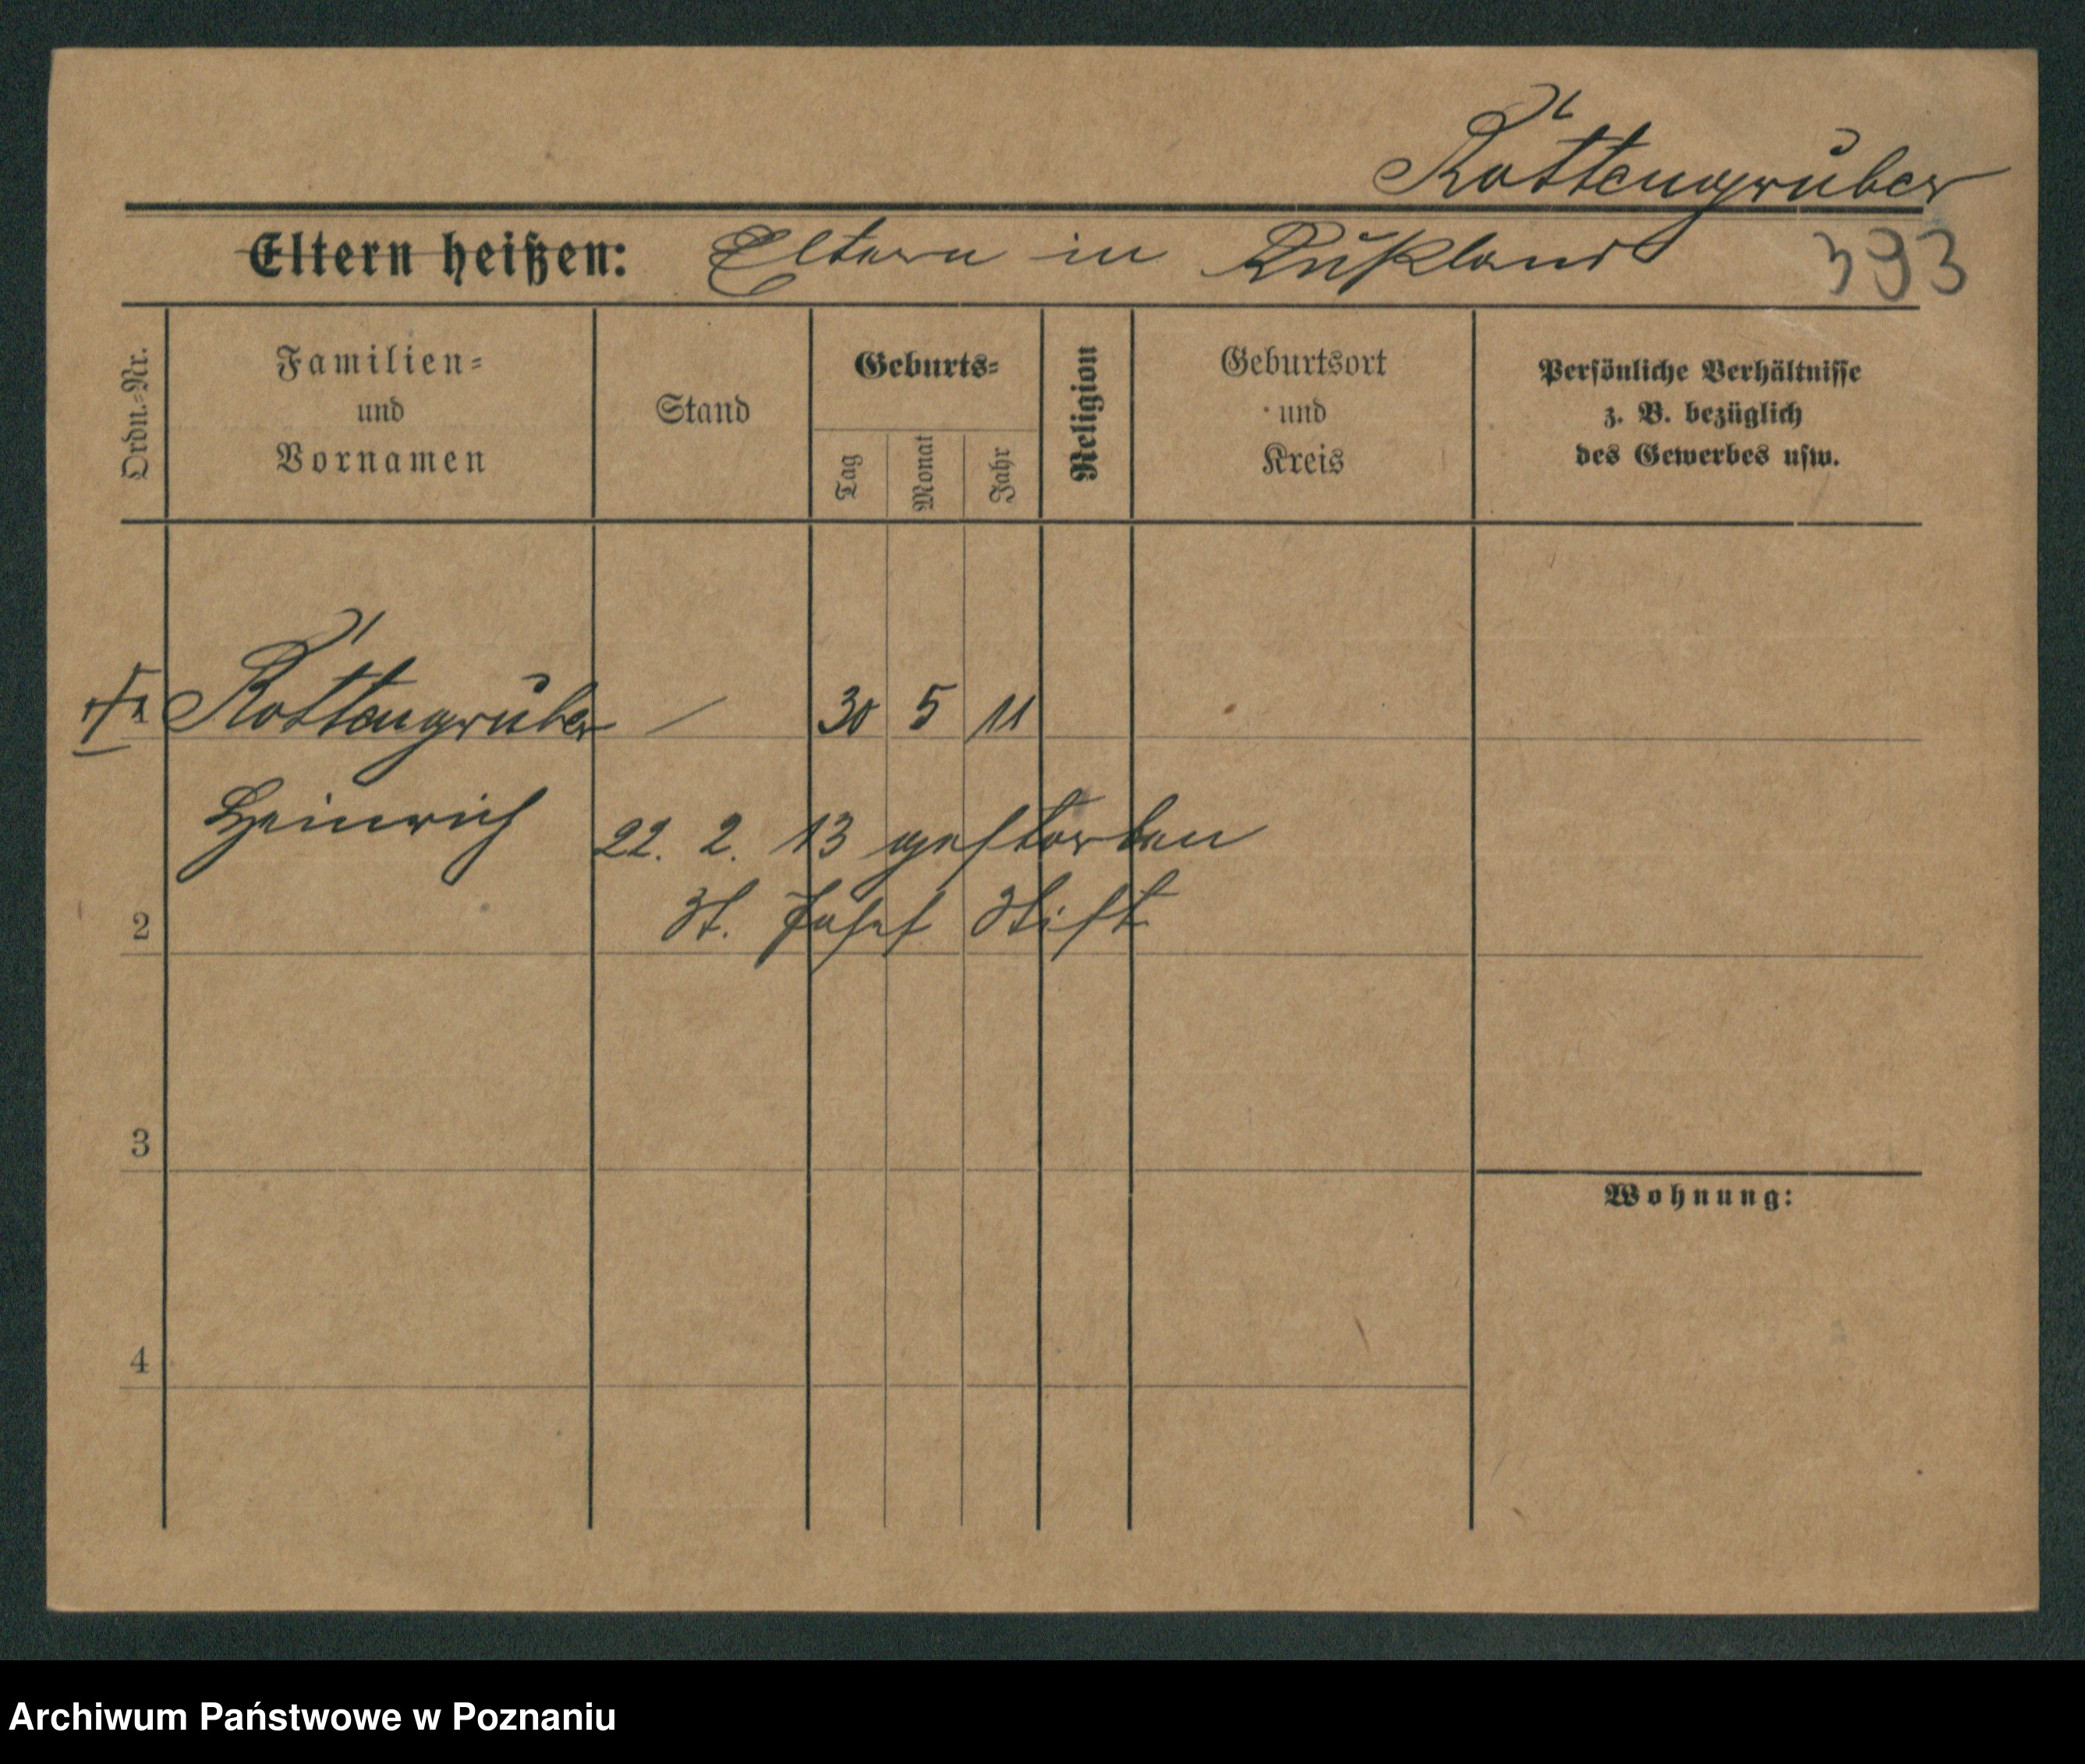 Rottengruber
Eltern heißen: Eltern in Rußland 393
Ordn.=Nr.
Familien=
und
Vornamen
Stand
Geburts=
Tag
Monat
Jahr
Religion
Geburtsort
und
Kreis
Persönliche Verhältnisse
z. B. bezüglich
des Gewerbes usw.
Rottengruber / 30 5 11
Heinrich
22. 2. 13 gestorben
St. Josef Stift
2
3
Wohnung:
4
Archiwum Państwowe w Poznaniu